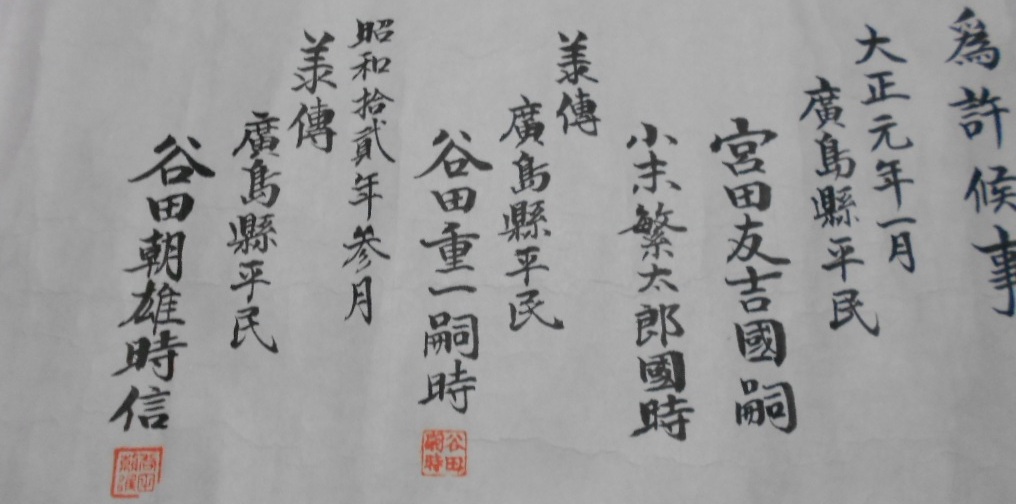 為許候事
大正元年一月
廣島縣平民
宮田友吉國嗣
小末繁太郎國時
羕傳
廣島縣平民
谷田重一嗣時
谷田嗣時
昭和拾貳年参月
羕傳
廣島縣平民
谷田朝雄時信